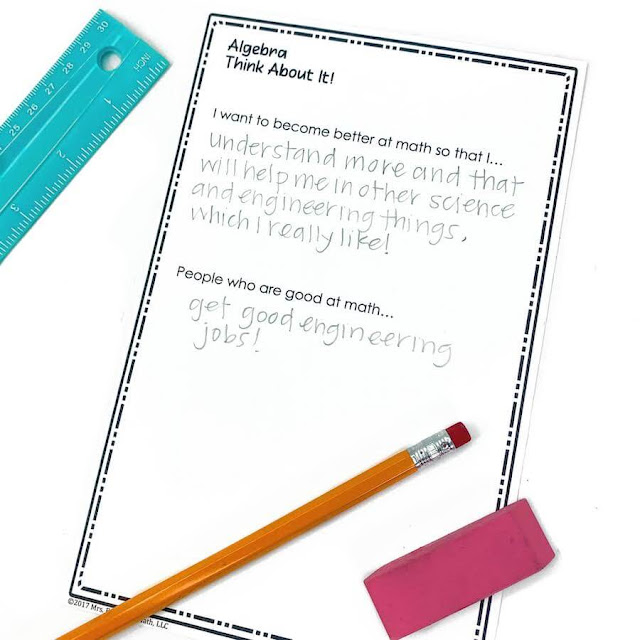 Algebra
Think About It!
I want to become better at math so that I...
understand more and that
will help me in other science
and engineering things,
which I really like!
People who are good at math...
get good engineering
jobs!
©2017 Mrs.
ath, LLC
INCH
1
2
3
30
29
28
27
26
25